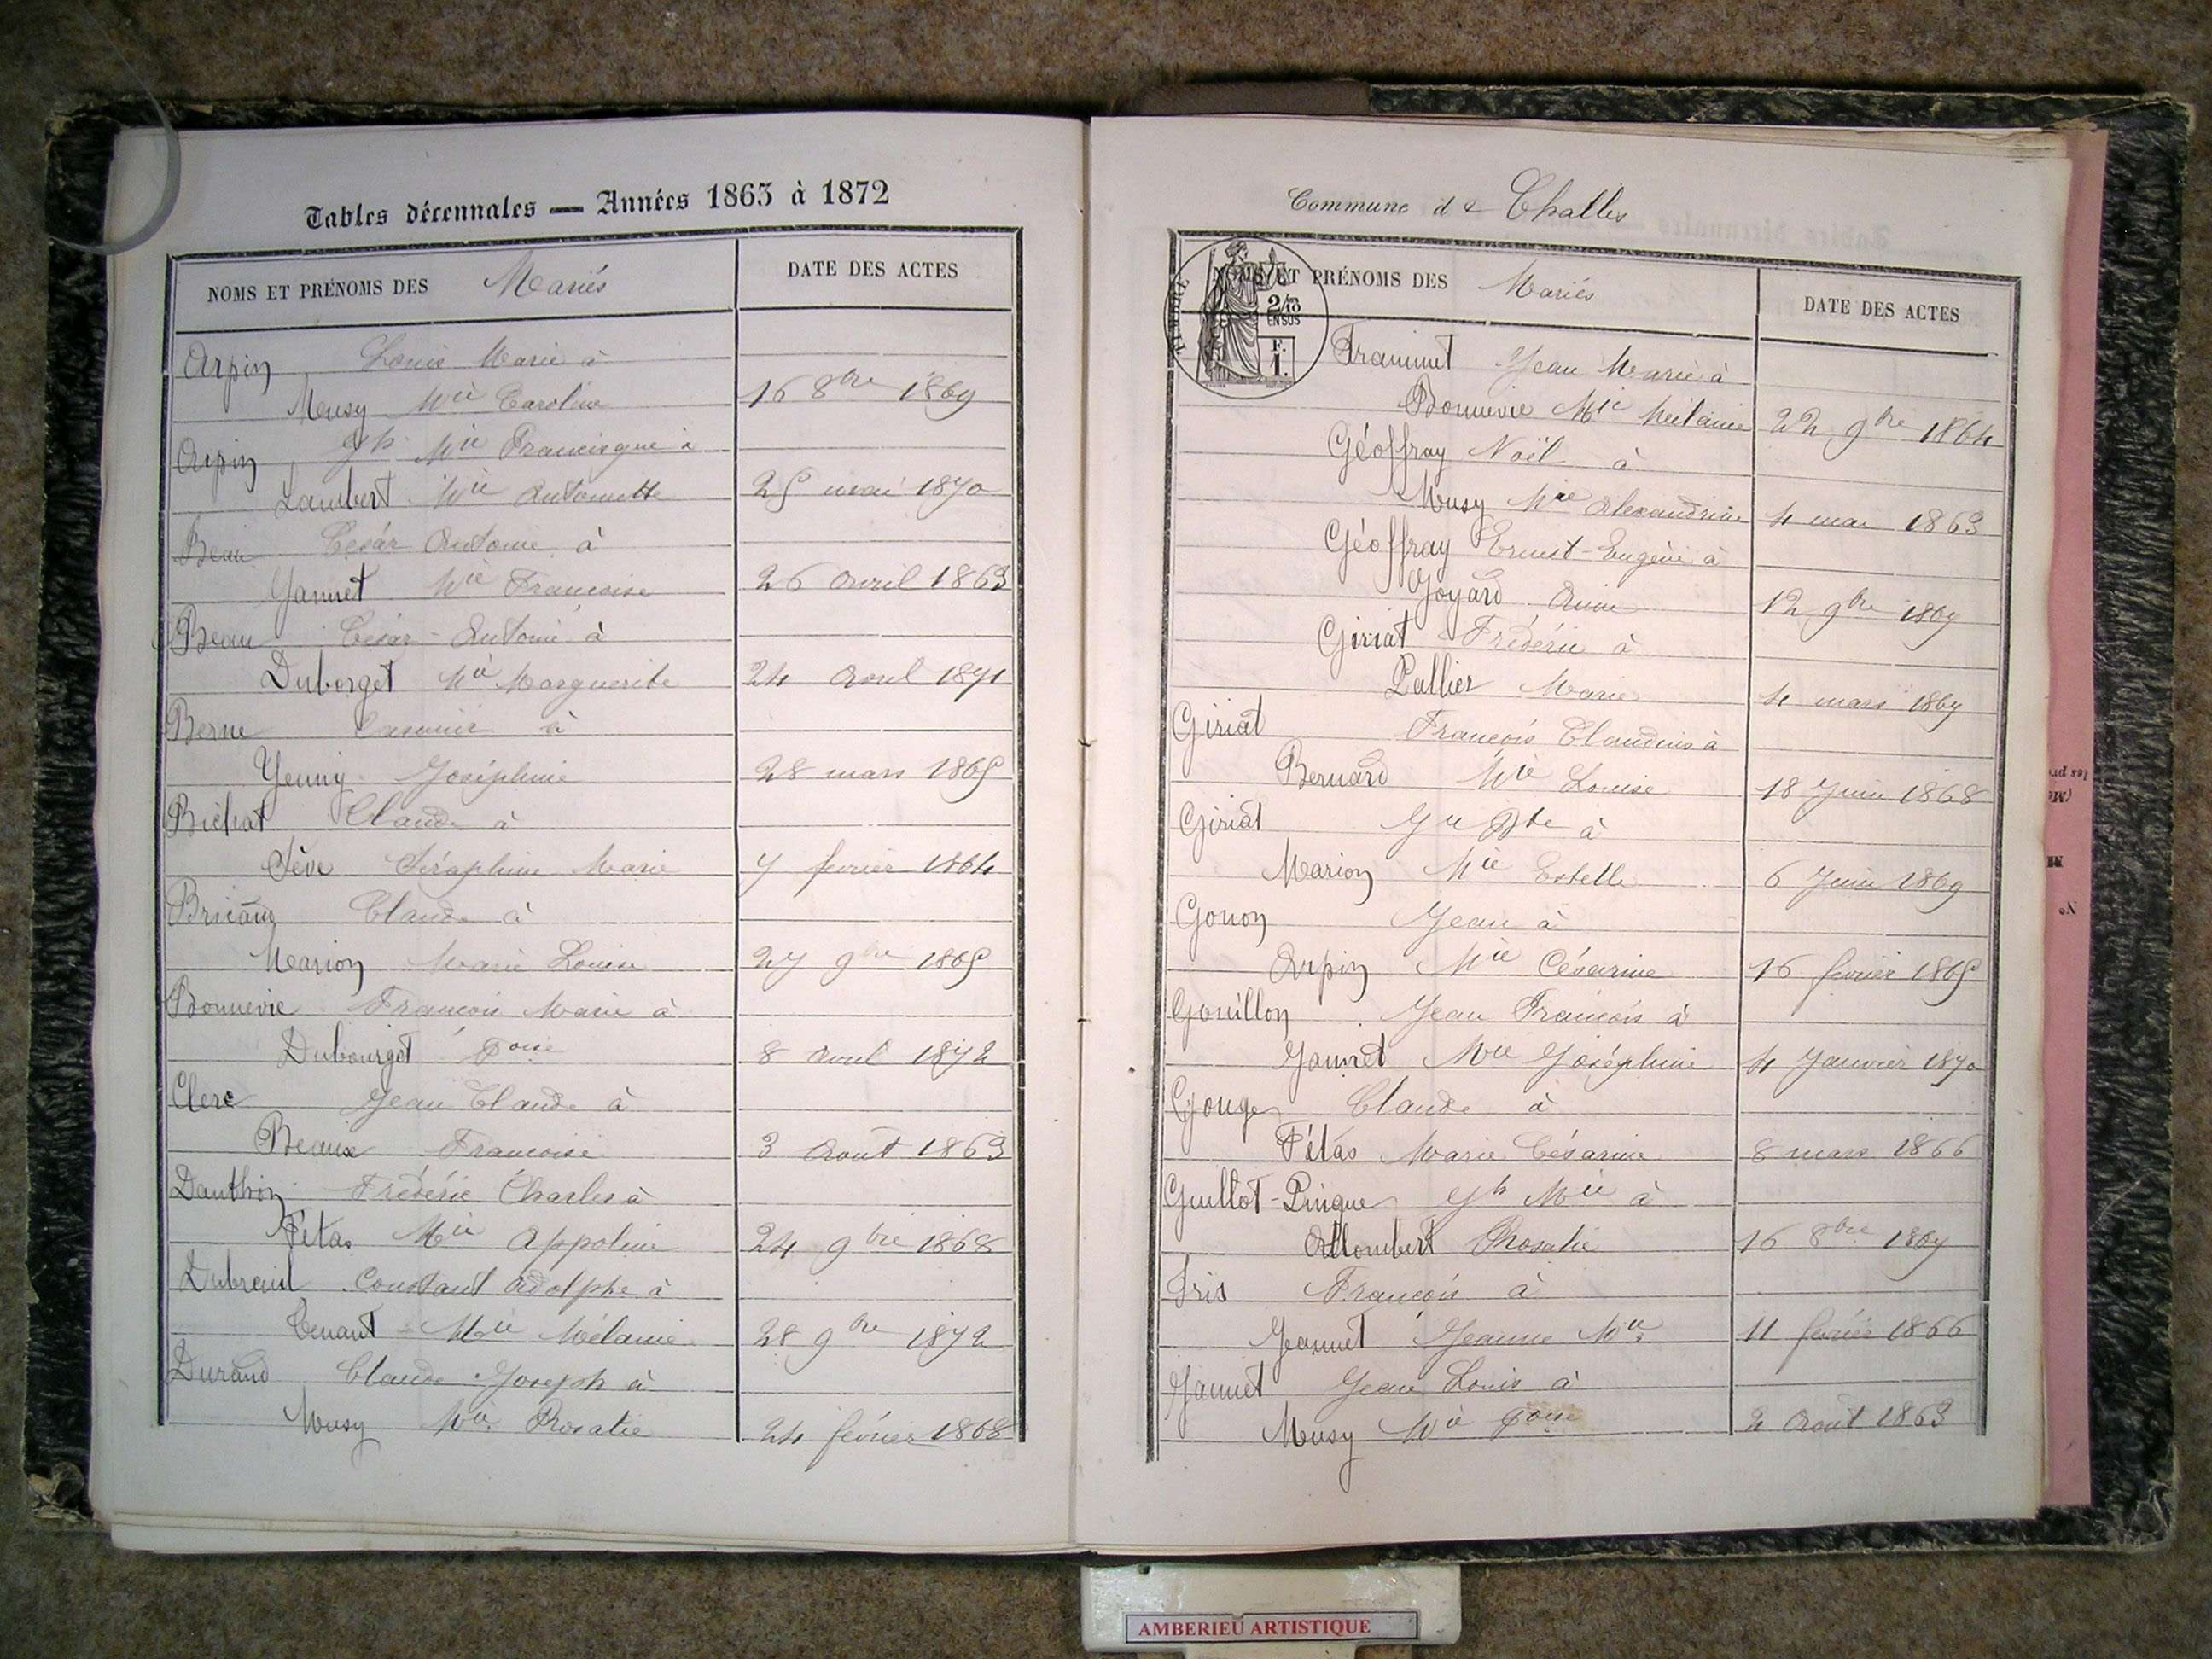 Tables décennales — Années 1863 à 1872
NOMS ET PRÉNOMS DES Mariés DATE DES ACTES
Arpin Louis Marie à
Musy Mie Caroline 16 8bre 1869
Arpin Jh Mie Francisque à
Lambert Mie Antoinette 25 mai 1870
Beau César Antoine à
Jannet Mie Francoise 26 Avril 1863
Beau César-Antoine à
Duborget Mie Marguerite 24 Avril 1871
Berne Casimir à
Yenny Joséphine 28 mars 1865
Bichat Claude à
Sève Séraphine Marie 7 février 1864
Claude à
Marion Marie Louise 27 9bre 1865
Bonnevie François Marie à
Dubourget Foise 8 avril 1872
Clerc Jean Claude à
Beaux Francoise 3 Août 1863
Danthon Fréderic Charles à
Pétas Mie Appoline 24 9bre 1868
Dubreuil Constant Adolphe à
Tenant Mie Mélanie 28 9bre 1872
Durand Claude Joseph à
Musy Mie Rosalie 24 février 1868
Commune de Challes
TIMBRE
2/10
EN SUS
F.
1.
NOMS ET PRÉNOMS DES Mariés DATE DES ACTES
Jean Marie à
Bonnevie Mie Mélanie 22 9bre 1864
Géoffray Noël à
Musy Mie Alexandrine 4 mai 1863
Géoffray Ernest-Eugène à
Goyard Anne 12 9bre 1867
Giriat Fréderic à
Pallier Marie 4 mars 1867
Giriat François Claudius à
Bernard Mie Louise 18 Juin 1868
Giriat Jn Bte à
Marion Mie Estelle 6 Juin 1869
Gonon Jean à
Arpin Mie Césarine 16 fevrier 1865
Gouillon Jean François à
Jannet Mie Joséphine 4 Janvier 1870
Gouge Claude à
Pétas Marie Césarine 8 mars 1866
Guillot-Pingue Jh Mie à
Allombert Rosalie 16 8bre 1867
Iris François à
Jeannet Jeanne Mie 11 février 1866
Jannet Jean Louis à
Musy Mie Foise 2 Août 1863
AMBERIEU ARTISTIQUE